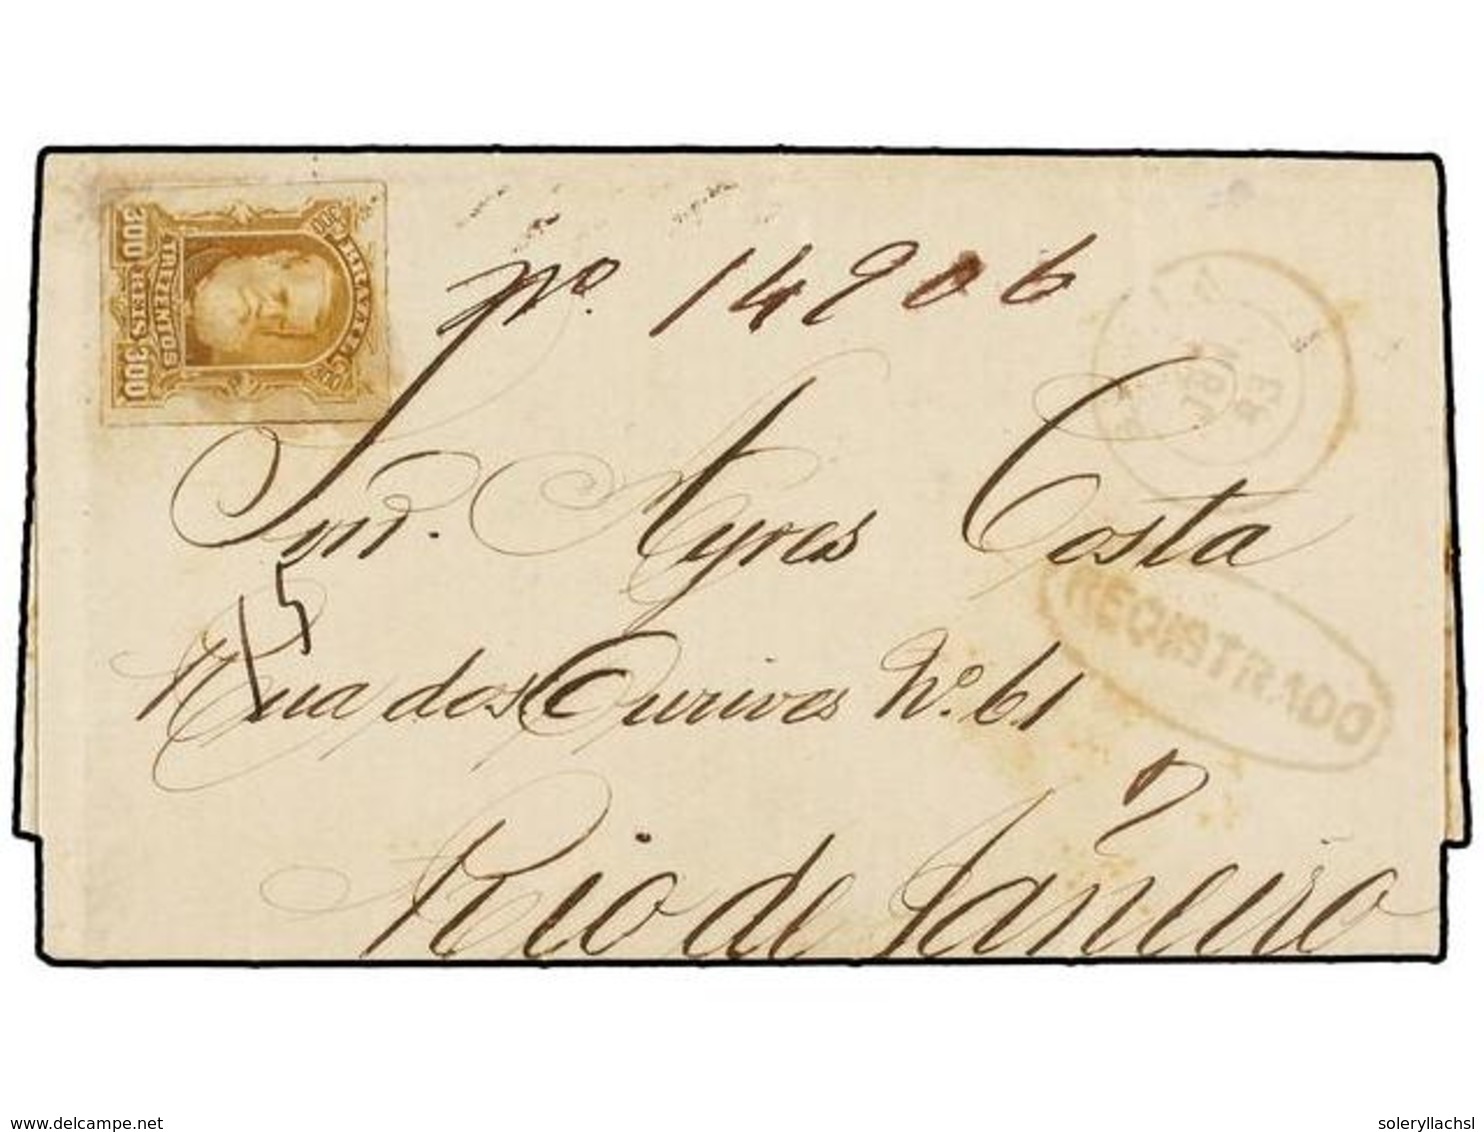 300 REIS 300
TREZENTOS
BRAZIL
300
No. 14206
Snr. Ayres Costa
15
Rua dos Ourives No. 61
REGISTRADO
Rio de Janeiro
www.delcampe.net
soleryllachsl